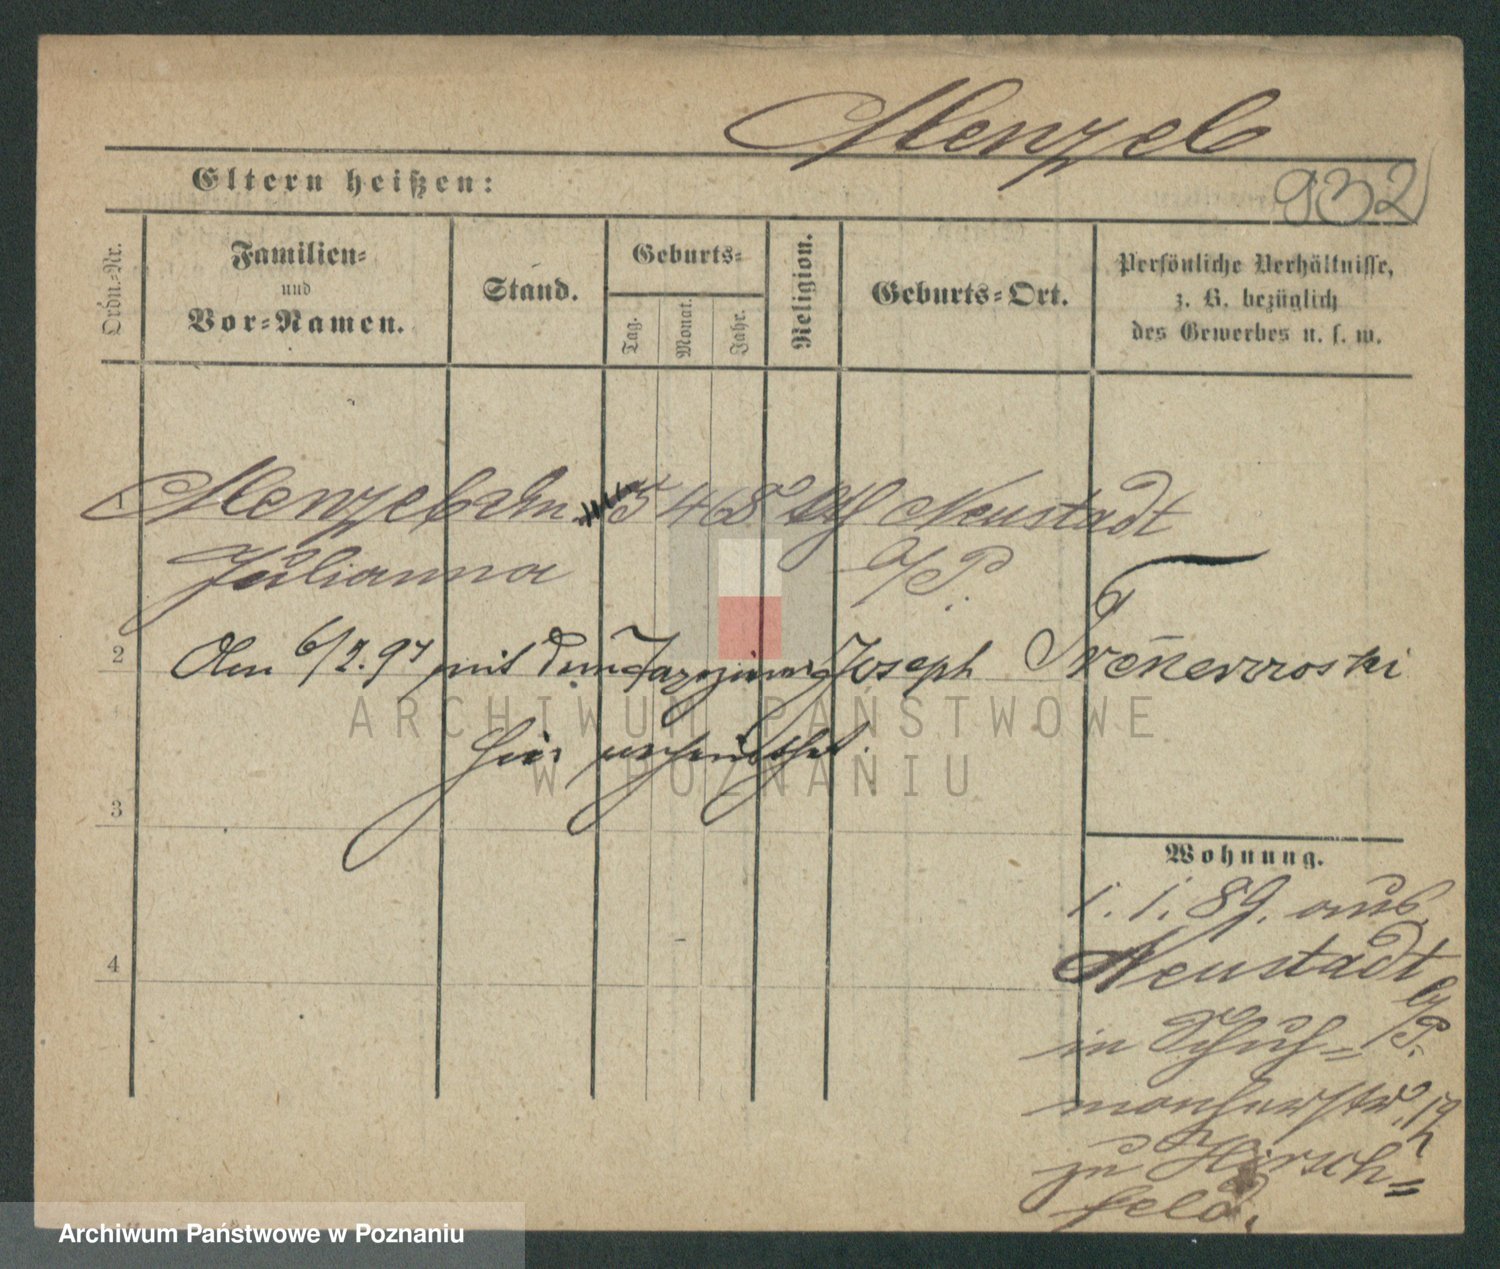 Menzel
Eltern heißen:
932
Ordn.-Nr.
Familien=
und
Vor=Namen.
Stand.
Geburts=
Tag.
Monat.
Jahr.
Religion.
Geburts=Ort.
Persönliche Verhältnisse,
z. B. bezüglich
des Gewerbes u. s. w.
1 Menzel 5 4 68 Neustadt
Julianna a/P.
2 Am 6/2.97 mit dem Joseph
hier
3
Wohnung.
1. 1. 89. aus
4 Neustadt
a/P.
in Schuh=
macherstr. 19
zu Hirsch=
feld.
ARCHIWUM PAŃSTWOWE
W POZNANIU
Archiwum Państwowe w Poznaniu